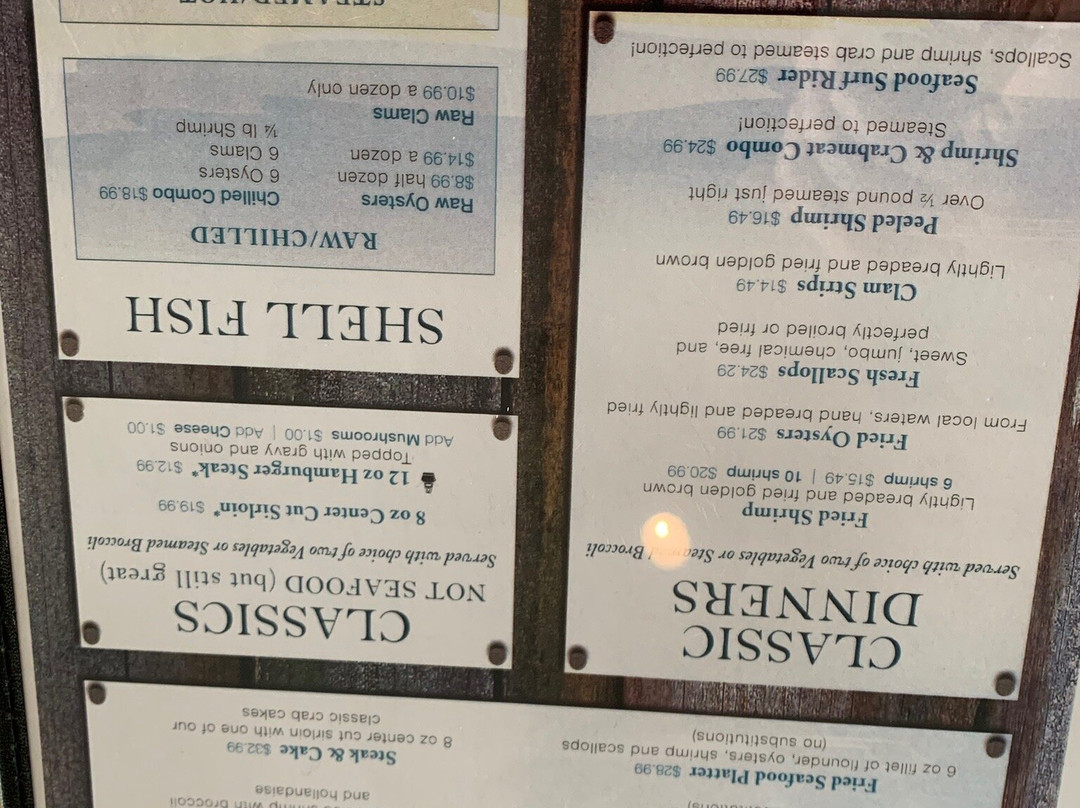 Fried Seafood Platter $28.99
6 oz fillet of flounder, oysters, shrimp and scallops
(no substitutions)
shrimp with broccoli
and hollandaise
Steak & Cake $32.99
8 oz center cut sirloin with one of our
classic crab cakes
CLASSIC
DINNERS
Served with choice of two Vegetables or Steamed Broccoli
Fried Shrimp
Lightly breaded and fried golden brown
6 shrimp $15.49 | 10 shrimp $20.99
Fried Oysters $21.99
From local waters, hand breaded and lightly fried
Fresh Scallops $24.29
Sweet, jumbo, chemical free, and
perfectly broiled or fried
Clam Strips $14.49
Lightly breaded and fried golden brown
Peeled Shrimp $16.49
Over ½ pound steamed just right
Shrimp & Crabmeat Combo $24.99
Steamed to perfection!
Seafood Surf Rider $27.99
Scallops, shrimp and crab steamed to perfection!
CLASSICS
NOT SEAFOOD (but still great)
Served with choice of two Vegetables or Steamed Broccoli
8 oz Center Cut Sirloin* $19.99
12 oz Hamburger Steak* $12.99
Topped with gravy and onions
Add Mushrooms $1.00 | Add Cheese $1.00
SHELL FISH
RAW/CHILLED
Raw Oysters
$8.99 half dozen
$14.99 a dozen
Raw Clams
$10.99 a dozen only
Chilled Combo $18.99
6 Oysters
6 Clams
¼ lb Shrimp
STEAMED/HOT